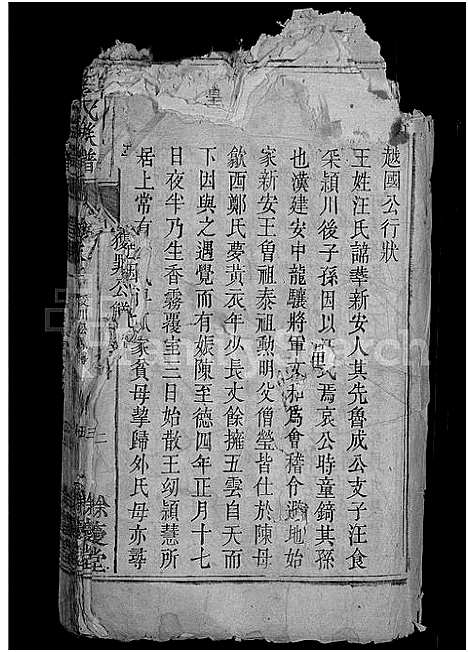 越國公行狀
王姓汪氏諱華新安人其先魯成公支子汪食
采潁川後子孫因以汪氏焉哀公時童錡其孫
也漢建安中龍驤將軍文和爲會稽令避地始
家新安王曾祖泰祖勲明父僧瑩皆仕於陳母
歙西鄭氏夢黃衣年少長丈餘擁五雲自天而
下因與之遇覺而有娠陳至德四年正月十七
日夜半乃生香霧覆室三日始散王幼穎慧所
居上常有
家貧母挈歸外氏母亦尋
皇
氏族譜
餘慶堂